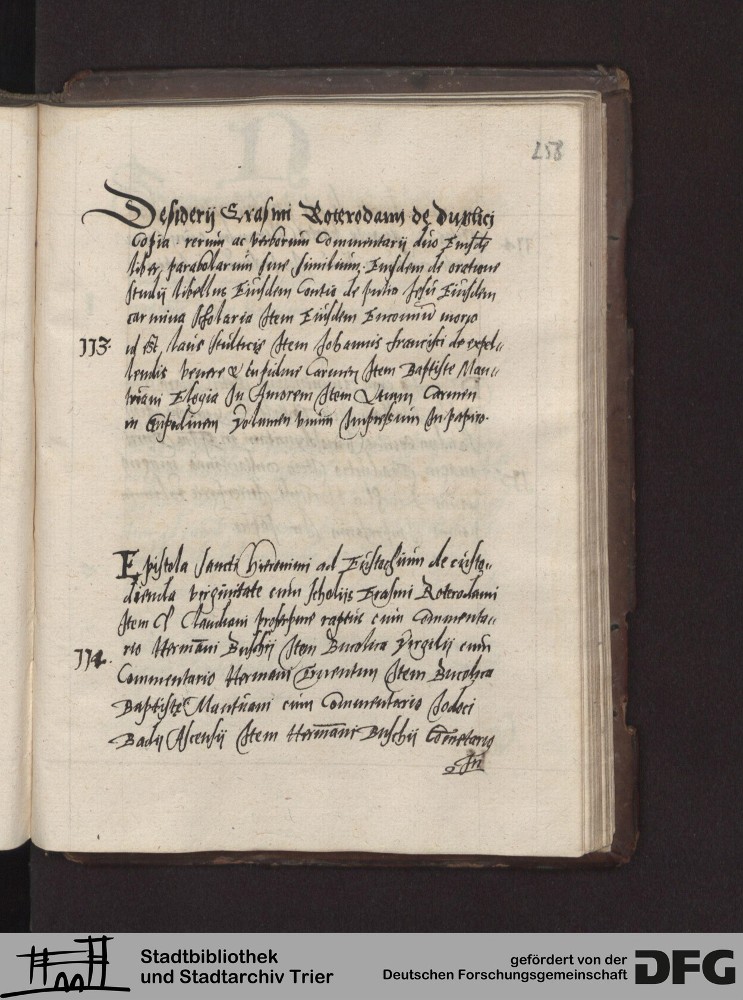 258
Desiderij Erasmi Roterodami de duplici
Copia rerum ac verborum Commentarij duo Eiusdē
liber parabolarum siue similium. Eiusdem de ratione
studij libellus Eiusdem Contio de puero Jesu Eiusdem
carmina scholaria Item Eiusdem Encomiū morio
113. id est, laus stulticie Item Johannis francisci de expel„
lendis venere & cupidine Carmen Item Baptiste Man„
tuani Elogia In Amorem Item Carmen
in Cupidinem Volumen vnum Impressum In papiro.
Epistola sancti Hieronimi ad Eustochium de custo„
dienda virginitate cum scholijs Erasmi Roterodami
Item Cl Claudiani proserpine raptus cum Commenta„
rio Hermāni Buschij Item Bucolica Virgilij cum
114. Commentario Hermani Torrentini Item Bucolica
Baptiste Mantuani cum Commentario Jodoci
Badij Ascensij Item Hermāni Buschij Cōmētario
In
Stadtbibliothek
und Stadtarchiv Trier
gefördert von der
Deutschen Forschungsgemeinschaft
DFG